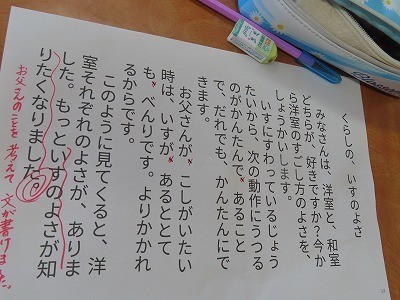 くらしの、いすのよさ
みなさんは、洋室と、和室
どちらが、好きですか？今か
ら洋室のすごし方のよさを、
しょうかいします。
いすにすわっているじょう
たいから、次の動作にうつる
のがかんたんで、あること
で、だれでも、かんたんにで
きます。
お父さんが、こしがいたい
時は、いすが、あるととて
も、べんりです。よりかかれ
るからです。
このように見てくると、洋
室それぞれのよさが、ありま
した。もっといすのよさが知
りたくなりました。
お父さんのことを考えて文が書けました。